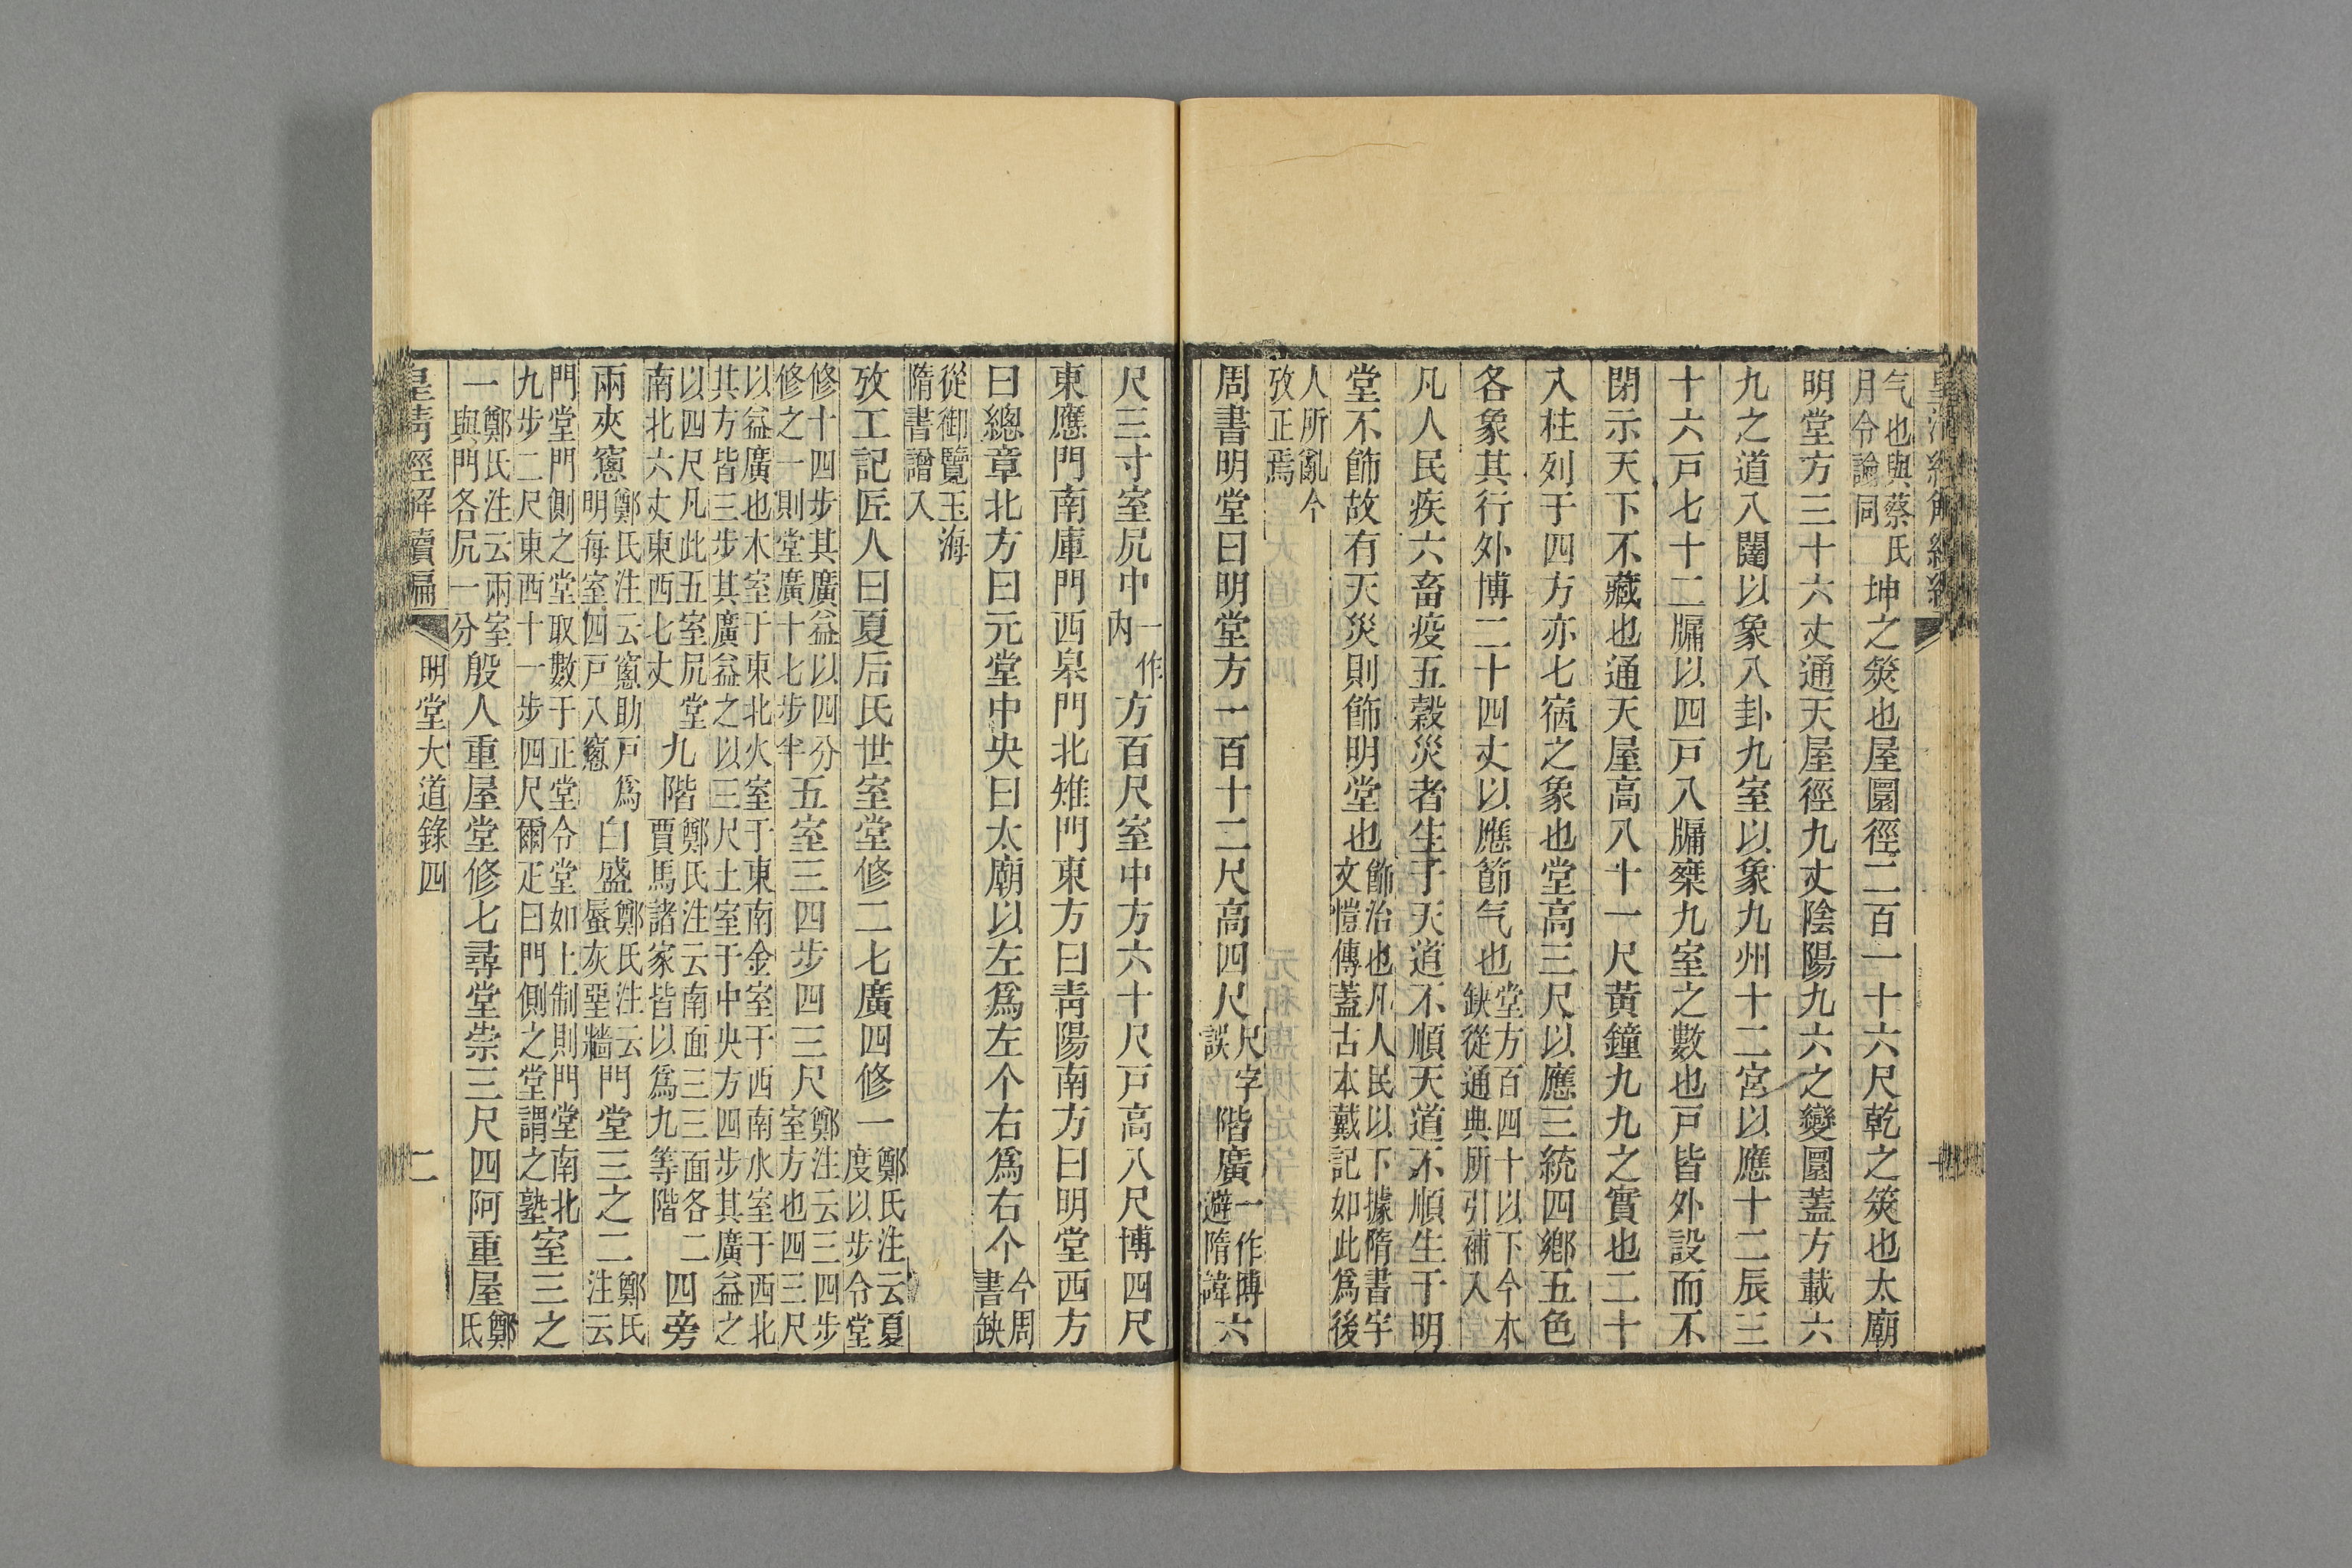 气也與蔡氏月令論同坤之筴也屋圜徑二百一十六尺乾之筴也太廟
明堂方三十六丈通天屋徑九丈陰陽九六之變圜蓋方載六
九之道八闥以象八卦九室以象九州十二宮以應十二辰三
十六戸七十二牖以四戸八牖椉九室之數也戸皆外設而不
閉示天下不藏也通天屋高八十一尺黃鐘九九之實也二十
八柱列于四方亦七宿之象也堂高三尺以應三統四鄉五色
各象其行外博二十四丈以應節气也堂方百四十以下今本缺從通典所引補入
凡人民疾六畜疫五穀災者生于天道不順天道不順生于明
堂不飾故有天災則飾明堂也飾治也凡人民以下據隋書宇文愷傳蓋古本戴記如此爲後
人所亂今攷正焉
周書明堂曰明堂方一百十二尺高四尺尺字誤階廣一作博避隋諱六
尺三寸室凥中一作內方百尺室中方六十尺戸高八尺博四尺
東應門南庫門西皋門北雉門東方曰靑陽南方曰明堂西方
曰總章北方曰元堂中央曰太廟以左爲左个右爲右个今周書缺
從御覽玉海隋書譄入
攷工記匠人曰夏后氏世室堂修二七廣四修一鄭氏注云夏度以步令堂
修十四步其廣益以四分修之一則堂廣十七步半五室三四步四三尺鄭注云三四步室方也四三尺
以益廣也木室于東北火室于東南金室于西南水室于西北其方皆三步其廣益之以三尺土室于中央方四步其廣益之
以四尺凡此五室凥堂南北六丈東西七丈九階鄭氏注云南面三三面各二賈馬諸家皆以爲九等階四旁
兩夾窻鄭氏注云窻助戸爲明每室四戸八窻白盛鄭氏注云蜃灰堊牆門堂三之二鄭氏注云
門堂門側之堂取數于正堂令堂如上制則門堂南北九步二尺東西十一步四尺爾疋曰門側之堂謂之塾室三之
一鄭氏注云兩室與門各凥一分殷人重屋堂修七尋堂崇三尺四阿重屋鄭氏
皇淸經解續編
明堂大道錄四
二